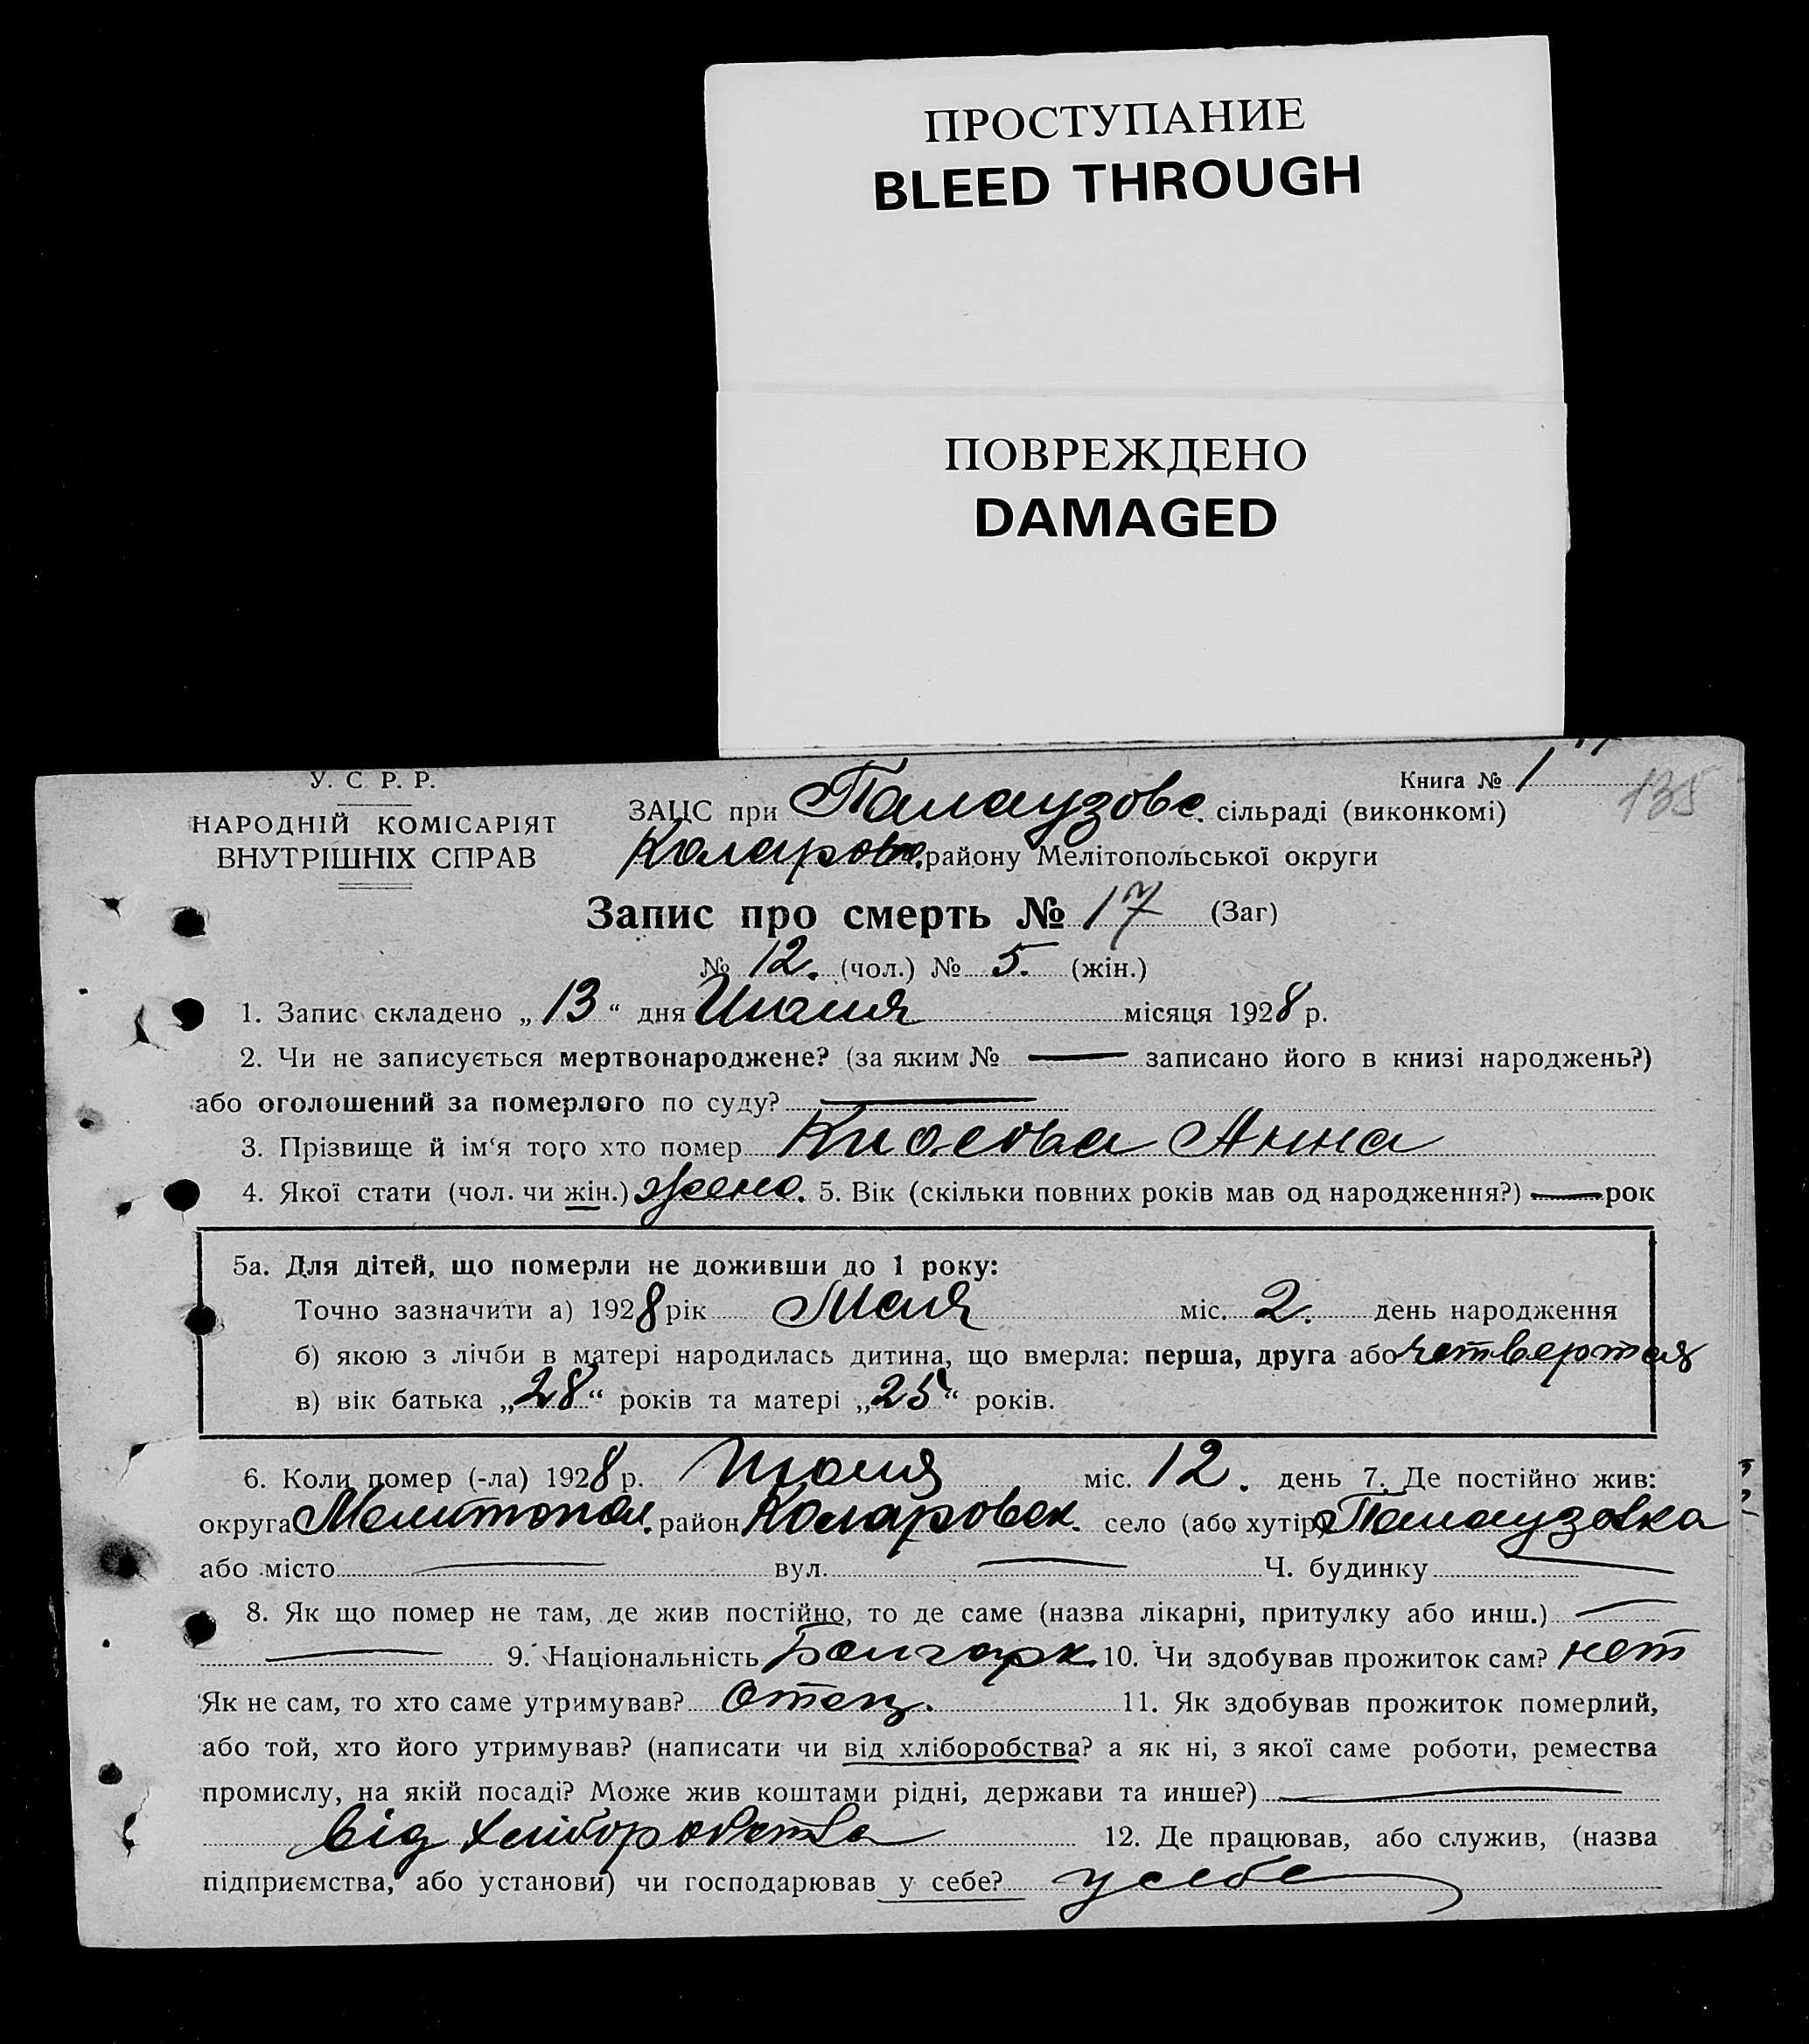 ПРОСТУПАНИЕ
BLEED THROUGH
ПОВРЕЖДЕНО
DAMAGED
У. С. Р. Р.
НАРОДНІЙ КОМІСАРІЯТ
ВНУТРІШНІХ СПРАВ
Книга № 1
135
ЗАЦС при Палаузовс. сільраді (виконкомі)
Коларовс. району Мелітопольської округи
Запис про смерть № 17 (Заг)
№ 12. (чол.) № 5. (жін.)
1. Запис складено „13“ дня Июля місяця 1928 р.
2. Чи не записується мертвонароджене? (за яким № — записано його в книзі народжень?)
або оголошений за померлого по суду? —
3. Прізвище й ім‘я того хто помер Киосова Анна
4. Якої стати (чол. чи жін.) жено. 5. Вік (скільки повних років мав од народження?) — рок
5а. Для дітей, що померли не доживши до 1 року:
Точно зазначити а) 1928 рік Мая міс. 2. день народження
б) якою з лічби в матері народилась дитина, що вмерла: перша, друга або четвертая
в) вік батька „28“ років та матері „25“ років.
6. Коли помер (-ла) 1928 р. Июля міс. 12. день 7. Де постійно жив:
округа Мелитопол. район Коларовск. село (або хутір) Палаузовка
або місто — вул. — Ч. будинку —
8. Як що помер не там, де жив постійно, то де саме (назва лікарні, притулку або инш.) —
— 9. Національність болгарк. 10. Чи здобував прожиток сам? нет
Як не сам, то хто саме утримував? Отец. 11. Як здобував прожиток померлий,
або той, хто його утримував? (написати чи від хліборобства? а як ні, з якої саме роботи, ремества
промислу, на якій посаді? Може жив коштами рідні, держави та инше?) —
від хліборобства 12. Де працював, або служив, (назва
підприємства, або установи) чи господарював у себе? у себе